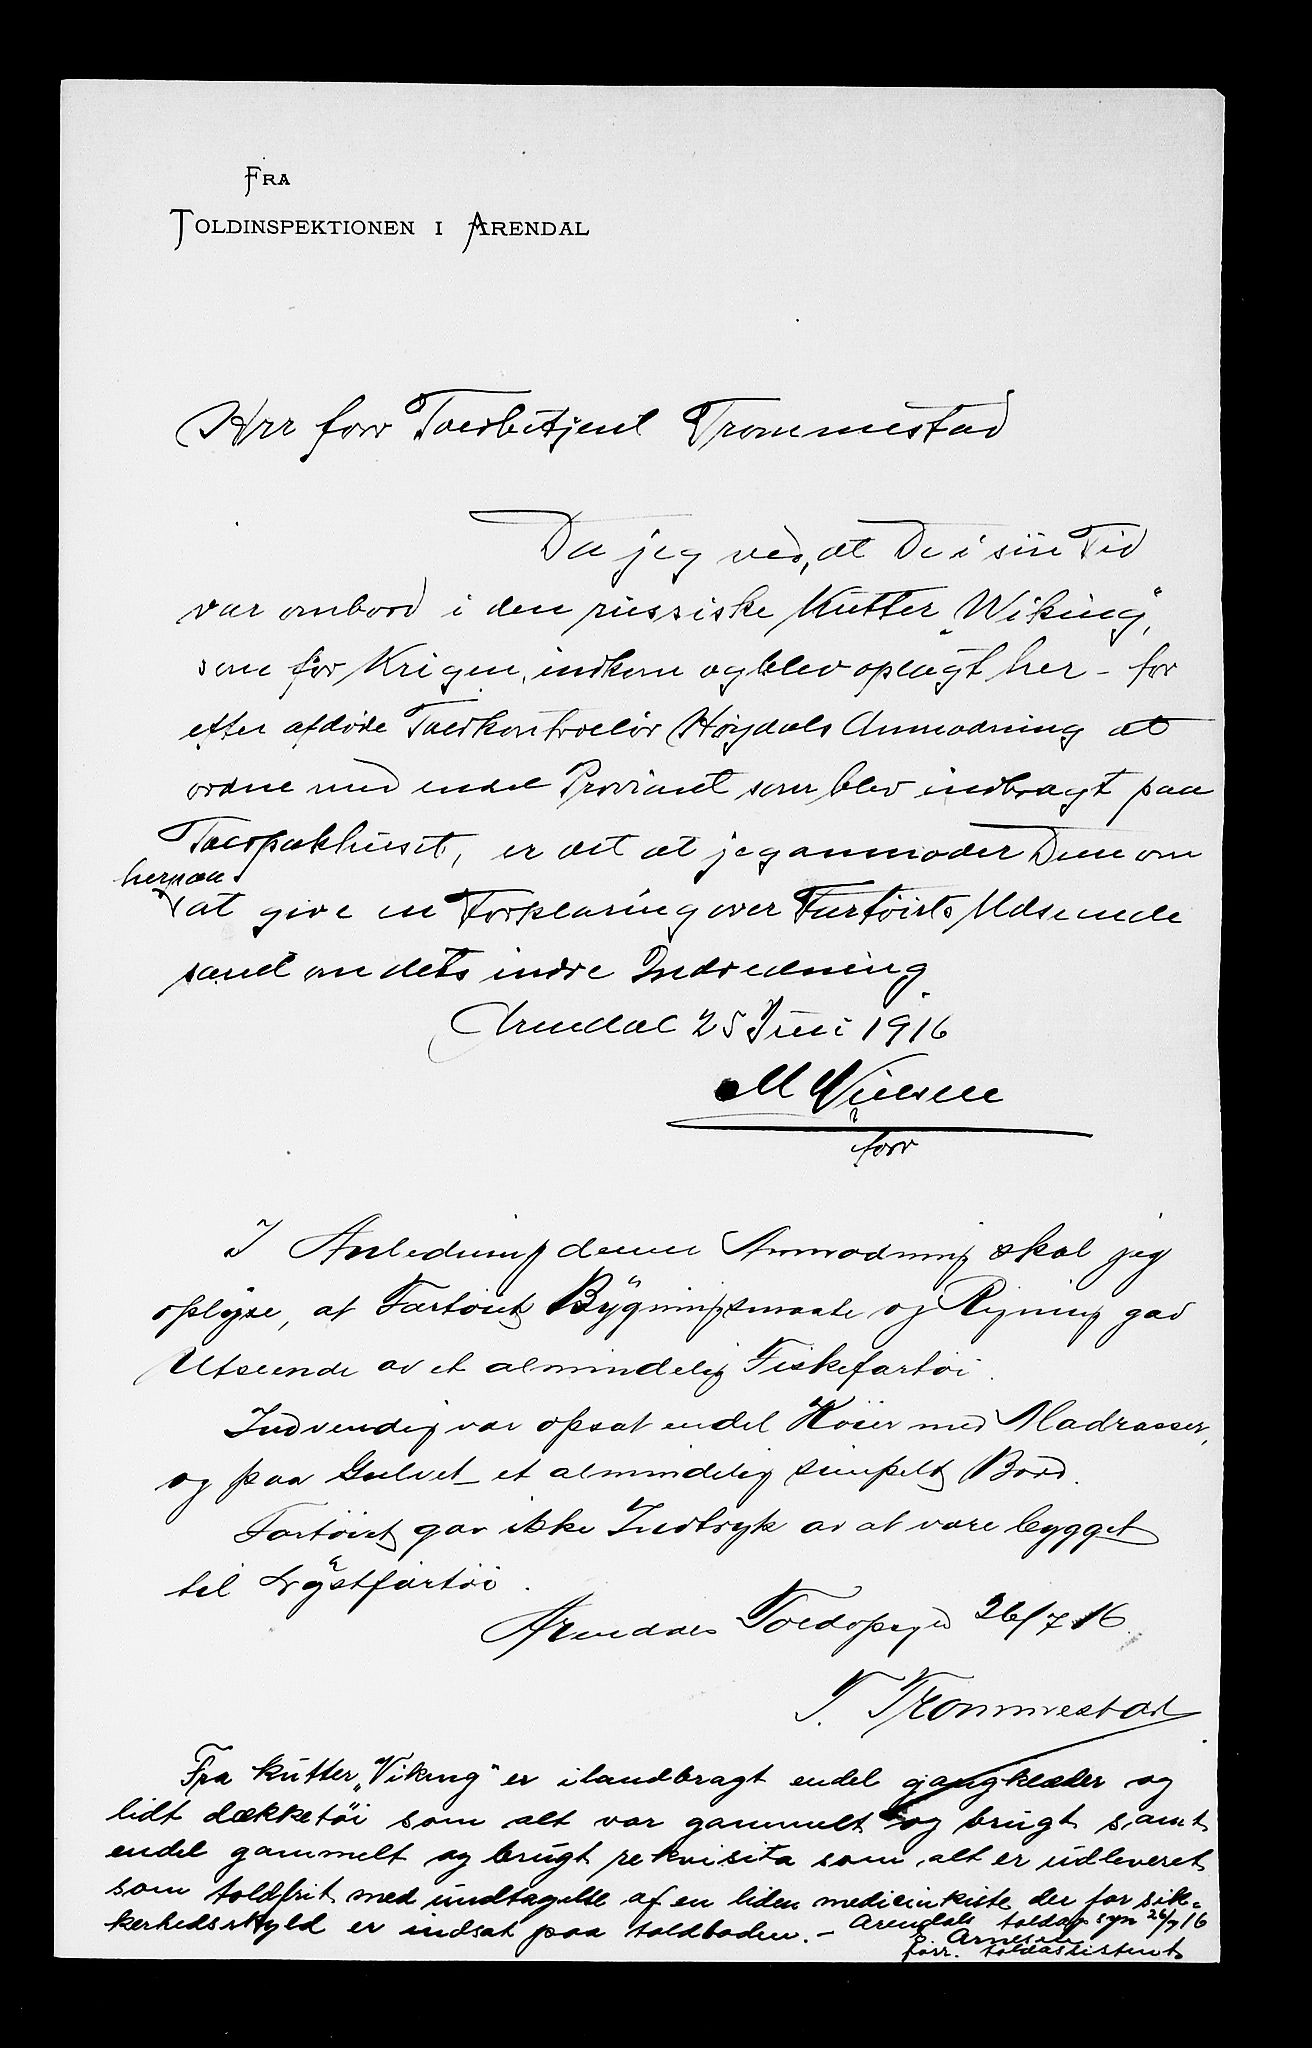 Fra
Toldinspektionen i Arendal
Hrr forr Toldbetjent Trommestad
Da jeg ved, at De i sin Tid
var ombord i den russiske Kutter „Wiking",
som før Krigen, indkom og blev oplagt her - for
efter afdøde Toldkontrollør Høydals Anmodning at
ordne med endel Proviant som blev indbragt paa
Toldpakhuset, er det at jeg anmoder Dem om
herpaa
at give en Forklaring over Fartøiets Udseende
samt om dets indre Indredning
Arendal 25 Juni 1916
M Nielsen
forr
I Anledning denne Anmodning skal jeg
oplyse, at Fartøiets Bygningsmaate og Rigning gav
Utseende av et almindelig Fiskefartøi.
Indvendig var opsat endel Køier med Madrasser,
og paa Gulvet et almindelig simpelt Bord.
Fartøiet gav ikke Indtryk av at være bygget
til Lystfartøi.
Arendals Toldopsyn 26/7 16.
T. Trommestad
Fra kutter „Viking" er ilandbragt endel gangklæder og
lidt dækketøi som alt var gammelt og brugt samt
endel gammelt og brugt rekvisita som alt er udleveret
som toldfrit med undtagelse af en liden medicinkiste der for sik-
kerhedsskyld er indsat paa toldboden. - Arendals toldopsyn 26/7 16
Arnesen
forr. toldassistent